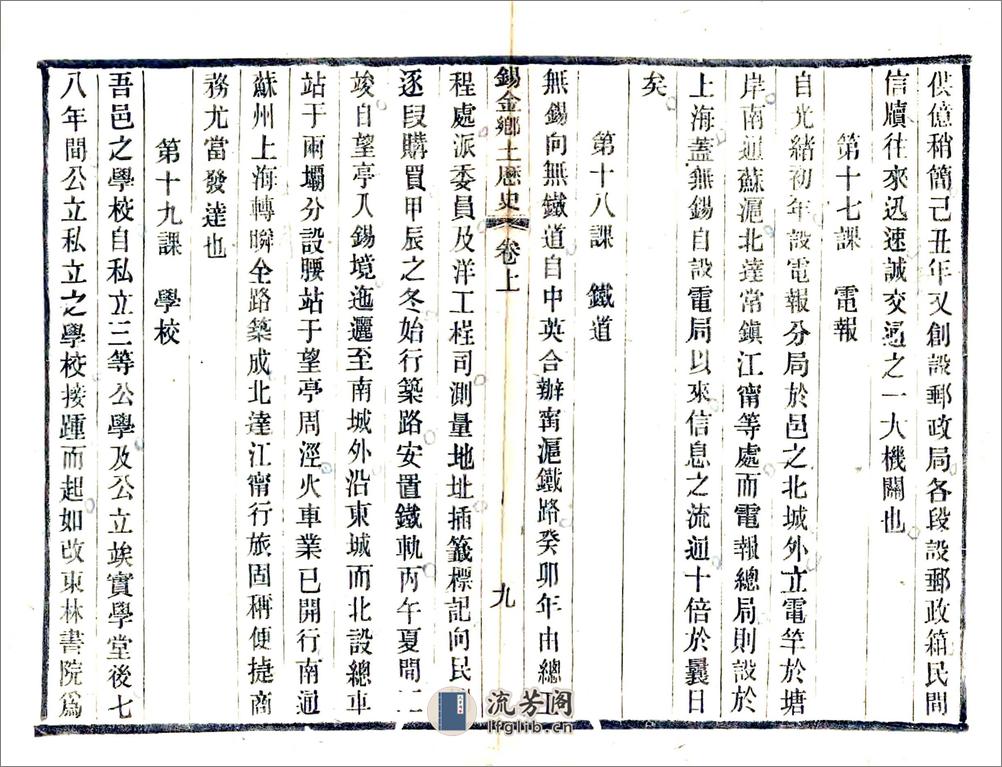 供億稍簡己丑年又創設郵政局各段設郵政箱民間
信牘往來迅速誠交通之一大機關也
第十七課 電報
自光緒初年設電報分局於邑之北城外立電竿於塘
岸南通蘇滬北達常鎮江甯等處而電報總局則設於
上海蓋無錫自設電局以來信息之流通十倍於曩日
矣
第十八課 鐵道
無錫向無鐵道自中英合辦甯滬鐵路癸卯年由總
錫金鄉土歷史 卷上 九
程處派委員及洋工程司測量地址插籤標記向民
逐段購買甲辰之冬始行築路安置鐵軌丙午夏間工
竣自望亭入錫境迤邐至南城外沿東城而北設總車
站于兩壩分設腰站于望亭周涇火車業已開行南通
蘇州上海轉瞬全路築成北達江甯行旅固稱便捷商
務尤當發達也
第十九課 學校
吾邑之學校自私立三等公學及公立竢實學堂後七
八年間公立私立之學校接踵而起如改東林書院爲
流芳阁
lfglib.cn